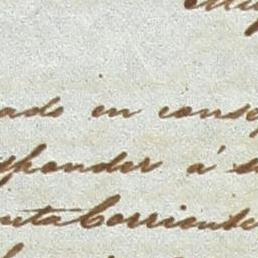 ado en conse
sponder á s
uta Corriente